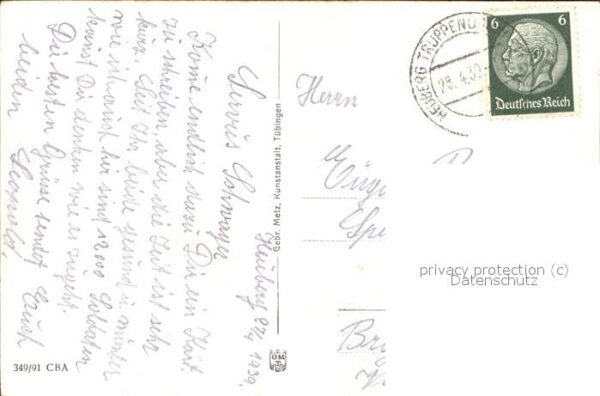 Heuberg 27/4 1939.
Servus Schwager
Komme endlich dazu Dir ein Kart
zu schreiben, aber die Zeit ist sehr
kurz. Seit Ihr beide gesund u. munter
wie ich auch, hier sind 12000 Soldaten
kannst Du denken wie es zugeht.
Die besten Grüsse sendet Euch
beiden
Leopold.
349/91 CBA
Gebr. Metz, Kunstanstalt, Tübingen
HEUBERG TRUPPENÜ
28.4.39
6 6
Deutsches Reich
Herrn
Euge
Spe
privacy protection (c)
Datenschutz